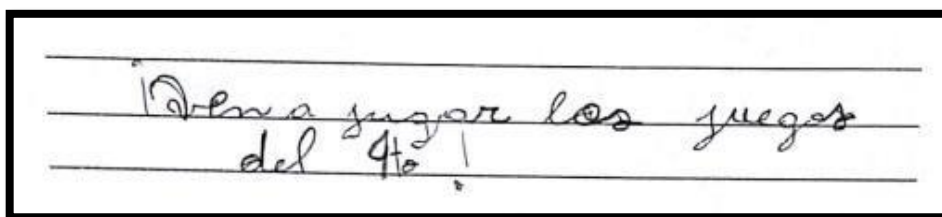 ¡Ven a jugar los juegos
del 4to!